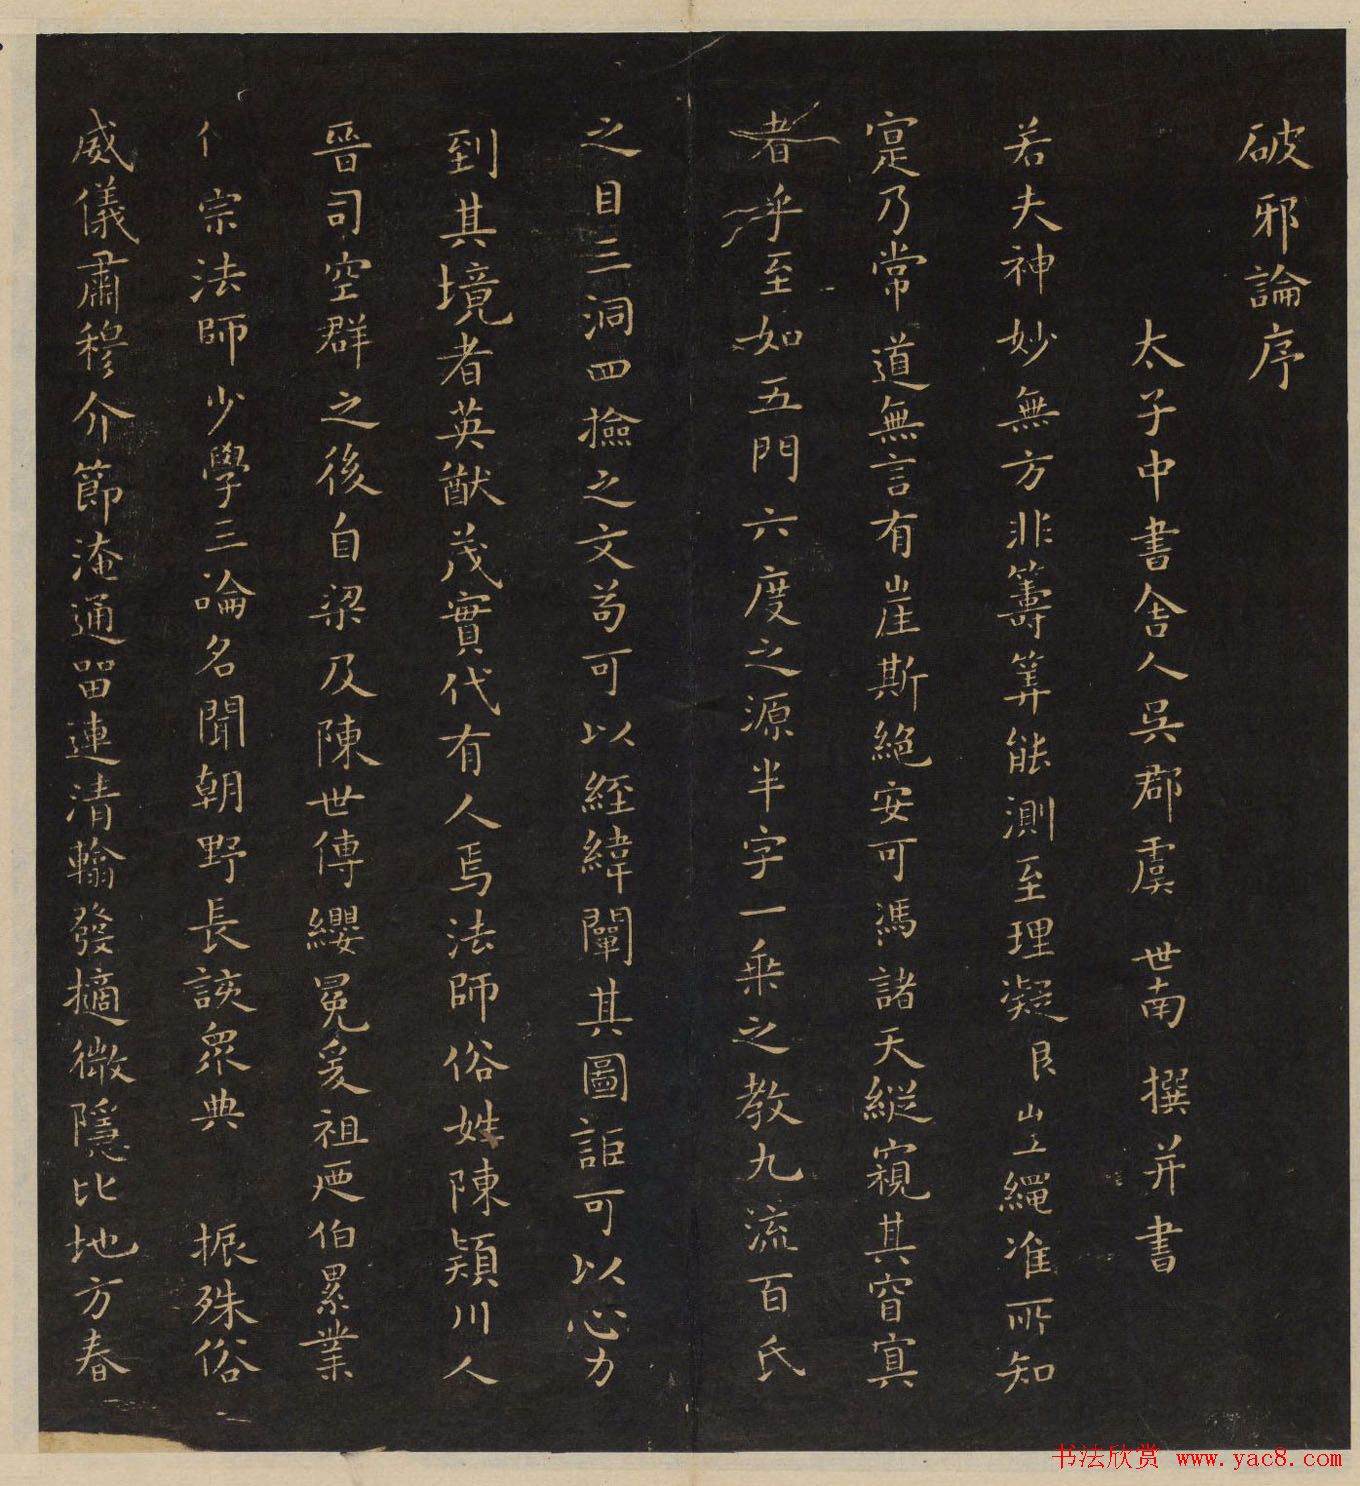 破邪論序
太子中書舍人吳郡虞世南撰并書
若夫神妙無方非籌筭能測至理凝㠯豈繩准所知
寔乃常道無言有崖斯絕安可馮諸天縱窺其窅寘
者乎至如五門六度之源半字一乘之教九流百氏
之目三洞四撿之文苟可以經緯闡其圖詎可以心力
到其境者英猷茂實代有人焉法師俗姓陳潁川人
晉司空群之後自梁及陳世傳纓冕爰祖迺伯累業
儒宗法師少學三論名聞朝野長該眾典振殊俗
威儀肅穆介節淹通留連清翰發擿微隱比地方春
书法欣赏 www.yac8.com